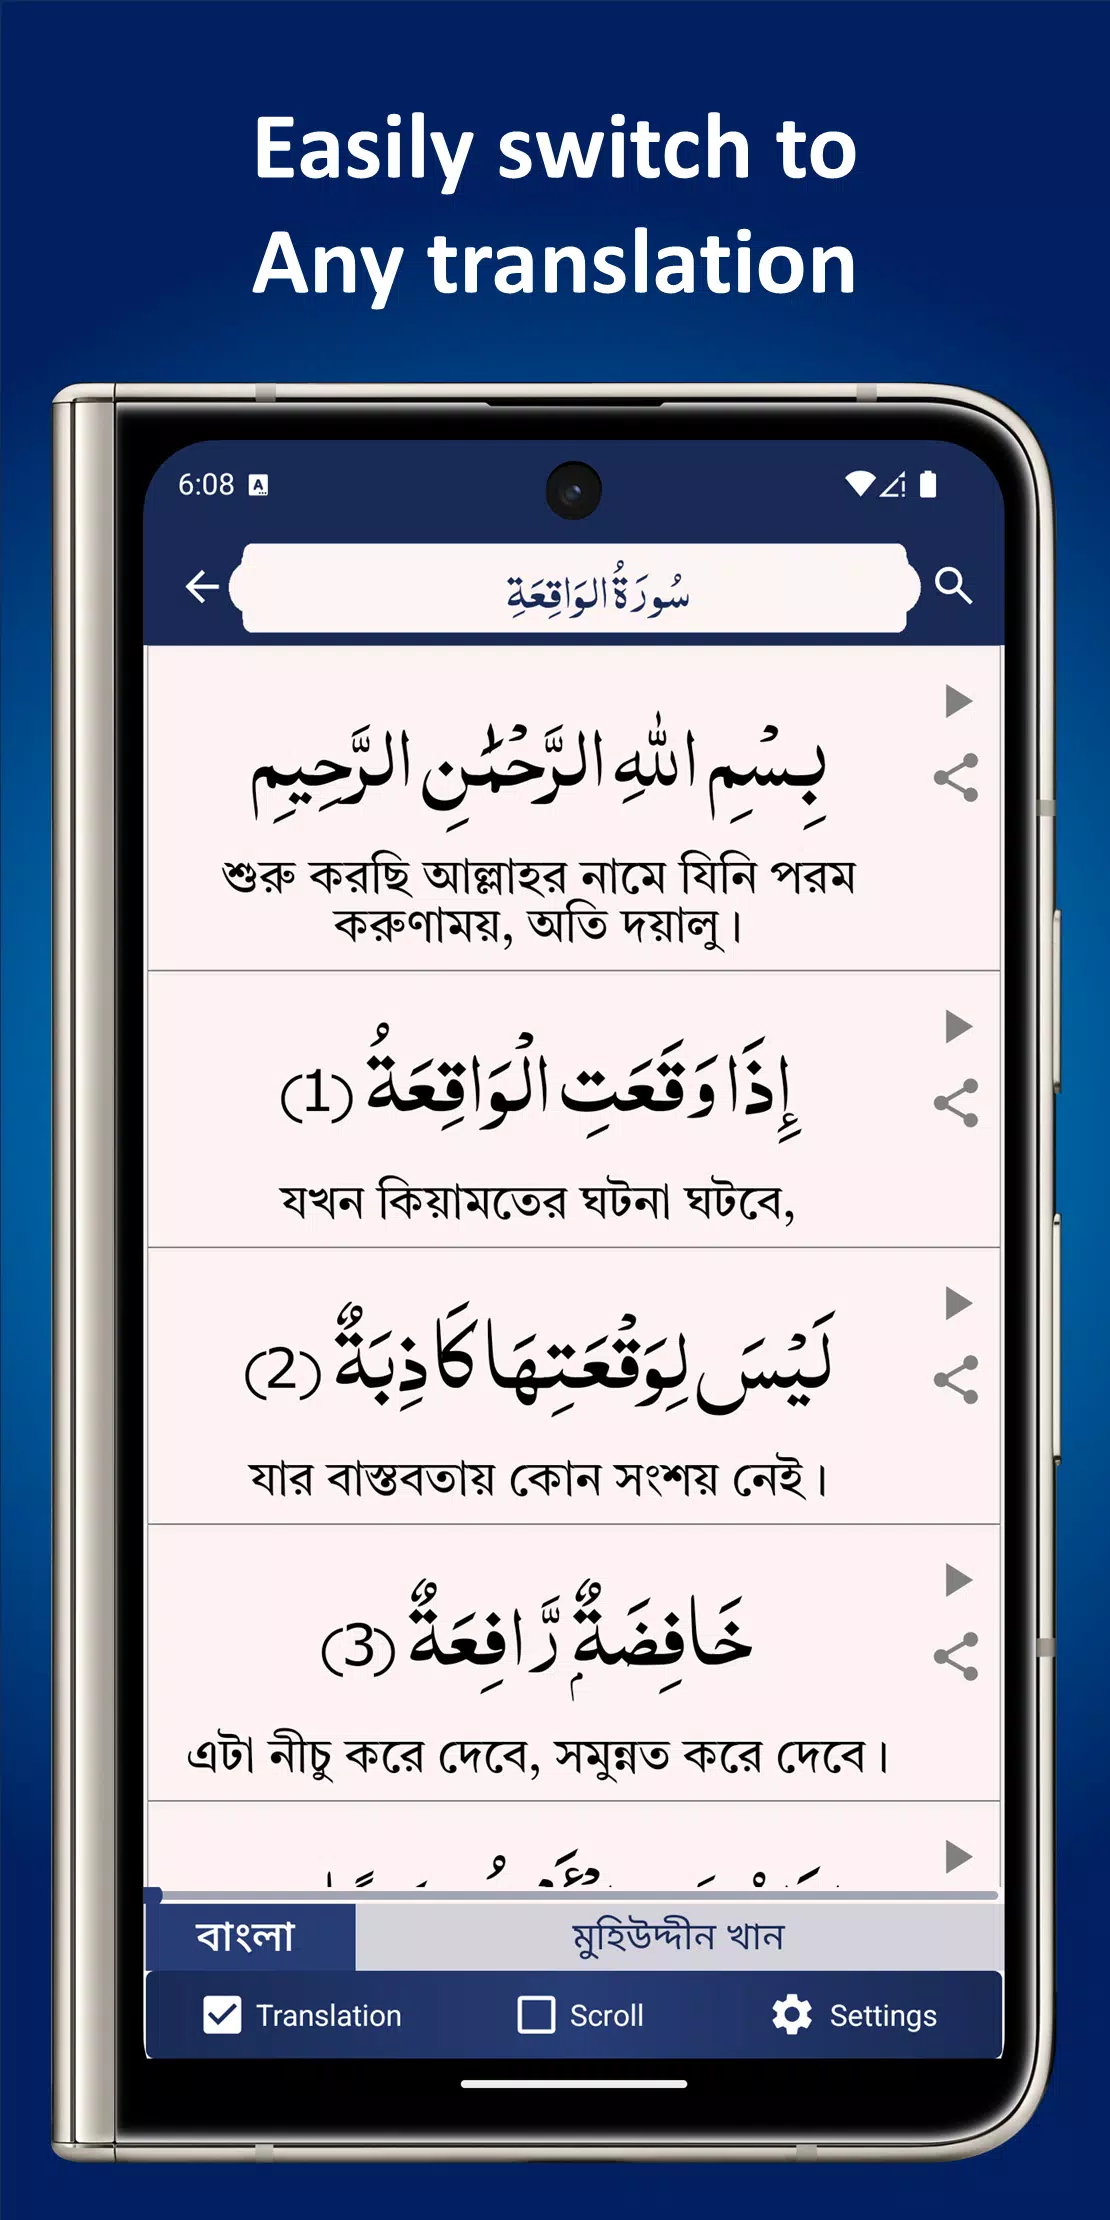 Easily switch to
Any translation
6:08
سُورَةُ الوَاقِعَةِ
بِسْمِ اللهِ الرَّحْمٰنِ الرَّحِيمِ
শুরু করছি আল্লাহর নামে যিনি পরম
করুণাময়, অতি দয়ালু।
إِذَا وَقَعَتِ الْوَاقِعَةُ (1)
যখন কিয়ামতের ঘটনা ঘটবে,
لَيْسَ لِوَقْعَتِهَا كَاذِبَةٌ (2)
যার বাস্তবতায় কোন সংশয় নেই।
خَافِضَةٌ رَّافِعَةٌ (3)
এটা নীচু করে দেবে, সমুন্নত করে দেবে।
বাংলা মুহিউদ্দীন খান
Translation Scroll Settings